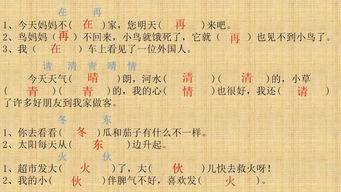 在 再
1、今天妈妈不(在)家,您明天(再)来吧。
2、鸟妈妈(再)不回来,小鸟就饿死了,它就(再)也见不到小鸟了。
3、我(在)车上看见了一位外国人。
请 清 青 晴 情
今天天气(晴)朗,河水(清)(清)的,小草
(青)(青)的,我的心(情)也很好,我还(请)
了许多好朋友到我家做客。
冬 东
1、你去看看(冬)瓜和茄子有什么不一样。
2、太阳每天从(东)边升起。
火 伙
1、超市发大(火)了,大(伙)儿快去救火呀!
2、我的小(伙)伴脾气不好,喜欢发(火)。